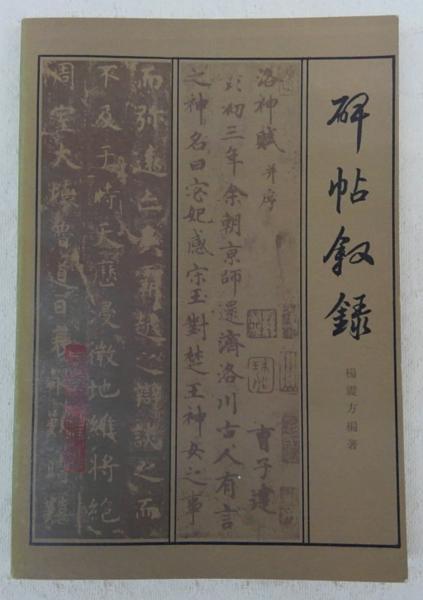 碑帖叙錄
楊震方編著
洛神賦 并序 曹子建
黃初三年余朝京師還濟洛川古人有言
之神名曰宓妃感宋玉對楚王神女之事
而弥遠亡吳霸越之辯談之而
不及于時天歷浸微地維將絕
周室大壞魯道日衰